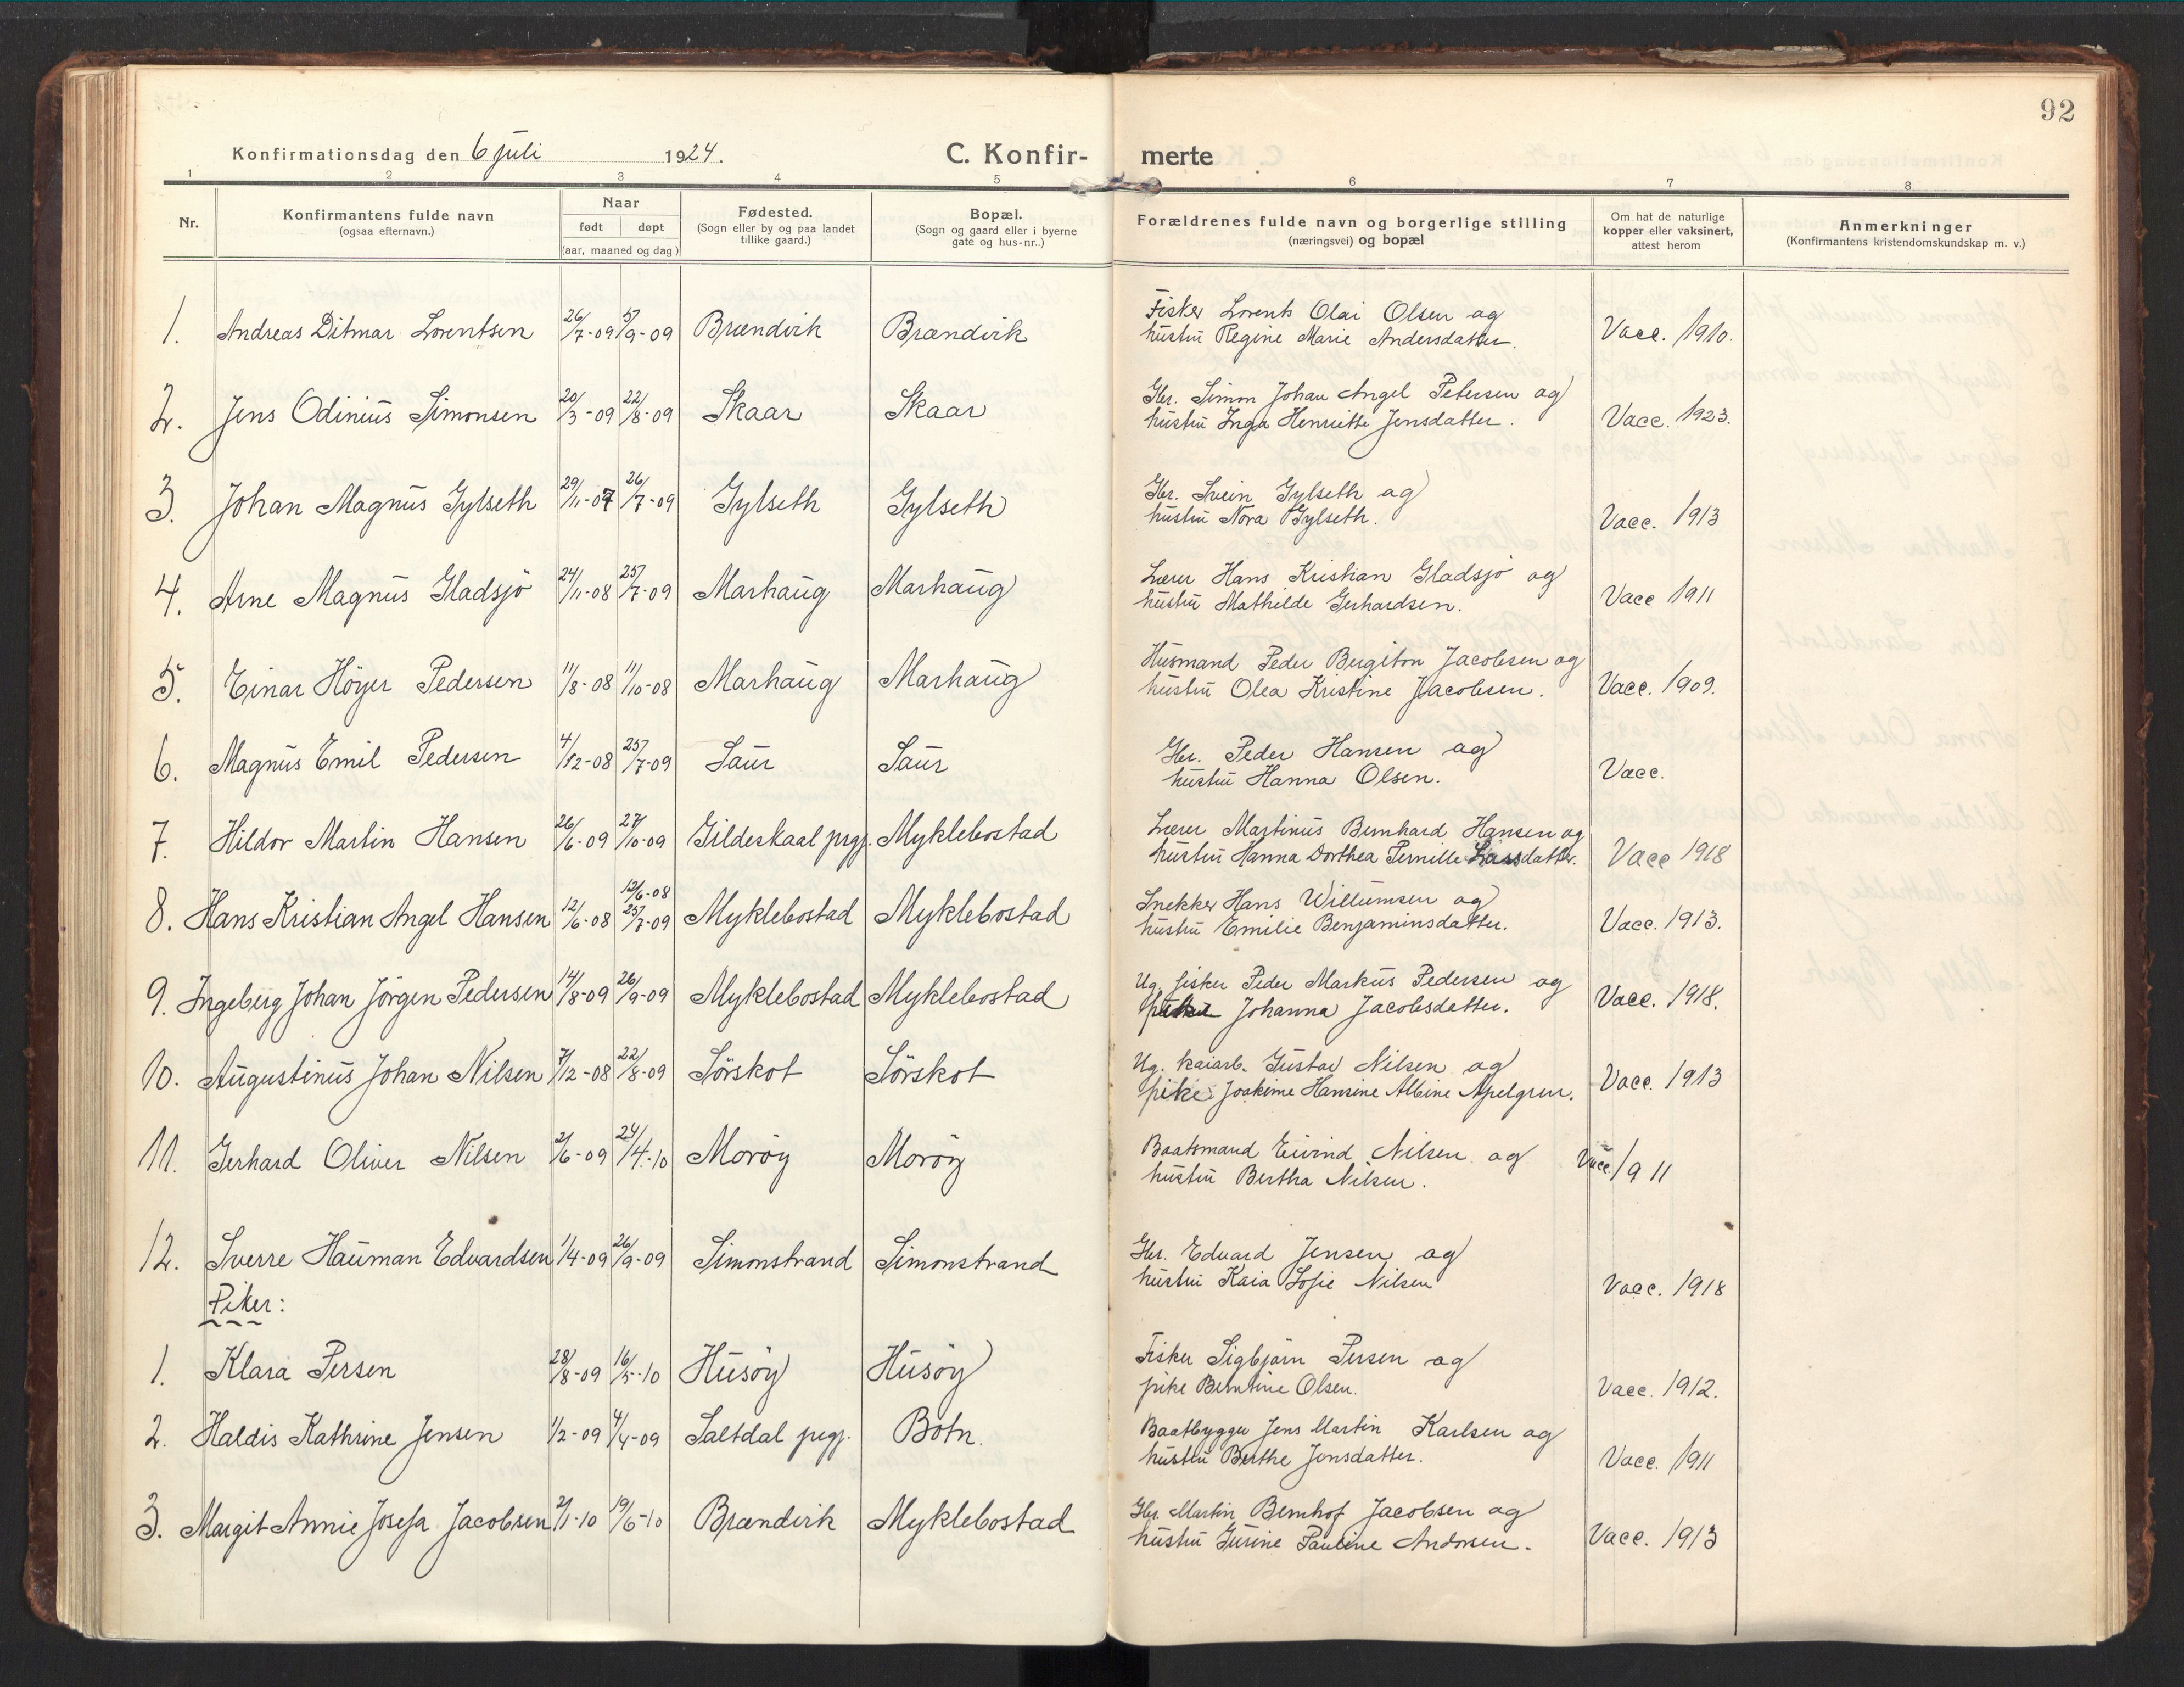 92
Konfirmationsdag den 6 juli 1924. C. Konfir- merte
1 2 3 4 5 6 7 8
Nr.
Konfirmantens fulde navn
(ogsaa efternavn.)
Naar
født døpt
(aar, maaned og dag)
Fødested.
(Sogn eller by og paa landet
tillike gaard.)
Bopæl.
(Sogn og gaard eller i byerne
gate og hus-nr..)
Forældrenes fulde navn og borgerlige stilling
(næringsvei) og bopæl
Om hat de naturlige
kopper eller vaksinert,
attest herom
Anmerkninger
(Konfirmantens kristendomskundskap m. v.)
1. Andreas Ditmar Lorentsen 26/7-09 5/9-09 Brændvik Brændvik
Fisker Lorents Olai Olsen og
hustru Regine Marie Andersdatter. Vacc. 1910.
2. Jens Odinius Simonsen 20/3-09 22/8-09 Skaar Skaar
Gbr. Simon Johan Angel Petersen og
hustru Inga Henriette Jensdatter. Vacc. 1923.
3. Johan Magnus Gylseth 29/11-07 26/7-09 Gylseth Gylseth
Gbr. Svein Gylseth og
hustru Nora Gylseth. Vacc. 1913
4. Arne Magnus Gladsjö 24/11-08 25/7-09 Marhaug Marhaug
Lærer Hans Kristian Gladsjö og
hustru Mathilde Gerhardsen. Vacc 1911
5. Einar Höyer Pedersen 11/8-08 11/10-08 Marhaug Marhaug
Husmand Peder Bergiton Jacobsen og
hustru Olea Kristine Jacobsen. Vacc. 1909.
6. Magnus Emil Pedersen 4/12-08 25/7-09 Saur Saur
Gbr. Peder Hansen og
hustru Hanna Olsen. Vacc.
7. Hildor Martin Hansen 26/6-09 27/10-09 Gildeskaal prgj. Myklebostad
Lærer Martinus Bernhard Hansen og
hustru Hanna Dorthea Pernille Larsdatter. Vacc 1918
12/6-08
8. Hans Kristian Angel Hansen 12/6-08 25/7-09 Myklebostad Myklebostad
Snekker Hans Willumsen og
hustru Emilie Benjaminsdatter. Vacc. 1913.
9. Ingeberg Johan Jörgen Pedersen 14/8-09 26/9-09 Myklebostad Myklebostad
Ug. fisker Peder Markus Pedersen og
pike Johanna Jacobsdatter. Vacc. 1918.
10. Augustinus Johan Nilsen 7/12-08 22/8-09 Sörskot Sörskot
Ug. kaiarb. Gustav Nilsen og
pike Joakime Hansine Albine Apelgren. Vacc. 1913
11. Gerhard Oliver Nilsen 2/6-09 24/4-10 Moröy Moröy
Baatsmand Eivind Nilsen og
hustru Bertha Nilsen. Vacc. 1911
12. Sverre Hauman Edvardsen 1/4-09 26/9-09 Simonstrand Simonstrand
Gbr. Edvard Jensen og
hustru Kaia Sofie Nilsen Vacc. 1918
Piker:
1. Klara Persen 28/8-09 16/5-10 Husöy Husöy
Fisker Sigbjørn Persen og
pike Berntine Olsen. Vacc. 1912.
2. Haldis Kathrine Jensen 1/2-09 4/4-09 Saltdal prgj. Botn.
Baatbygger Jens Martin Karlsen og
hustru Berthe Jensdatter. Vacc. 1911
3. Margit Annie Josefa Jacobsen 2/1-10 19/6-10 Brændvik Myklebostad
Gbr. Martin Bernhof Jacobsen og
hustru Gurine Pauline Andorsen. Vacc. 1913